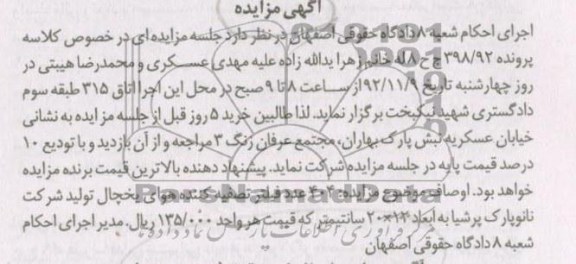 آگهی مزایده
اجرای احکام شعبه ۸ دادگاه حقوقی اصفهان در نظر دارد جلسه مزایده ای در خصوص کلاسه
پرونده ۳۹۸/۹۲ ج ح ۸ له خانم زهرا یدالله زاده علیه مهدی عسکری و محمدرضا هیبتی در
روز چهارشنبه تاریخ ۹۲/۱۱/۹ از ساعت ۸ تا ۹ صبح در محل این اجرا اتاق ۳۱۵ طبقه سوم
دادگستری شهید نیکبخت برگزار نماید. لذا طالبین خرید ۵ روز قبل از جلسه مزایده به نشانی
خیابان عسکریه نبش پارک بهاران، مجتمع عرفان زنگ ۳ مراجعه و از آن بازدید و با تودیع ۱۰
درصد قیمت پایه در جلسه مزایده شرکت نماید. پیشنهاد دهنده بالاترین قیمت برنده مزایده
خواهد بود. اوصاف موضوع مزایده: ۴۰۴ عدد فیلتر تصفیه کننده هوای یخچال تولید شرکت
نانوپارک پرشیا به ابعاد ۱۴×۲۰ سانتیمتر که قیمت هر واحد ۱۳۵/۰۰۰ ریال. مدیر اجرای احکام
شعبه ۸ دادگاه حقوقی اصفهان